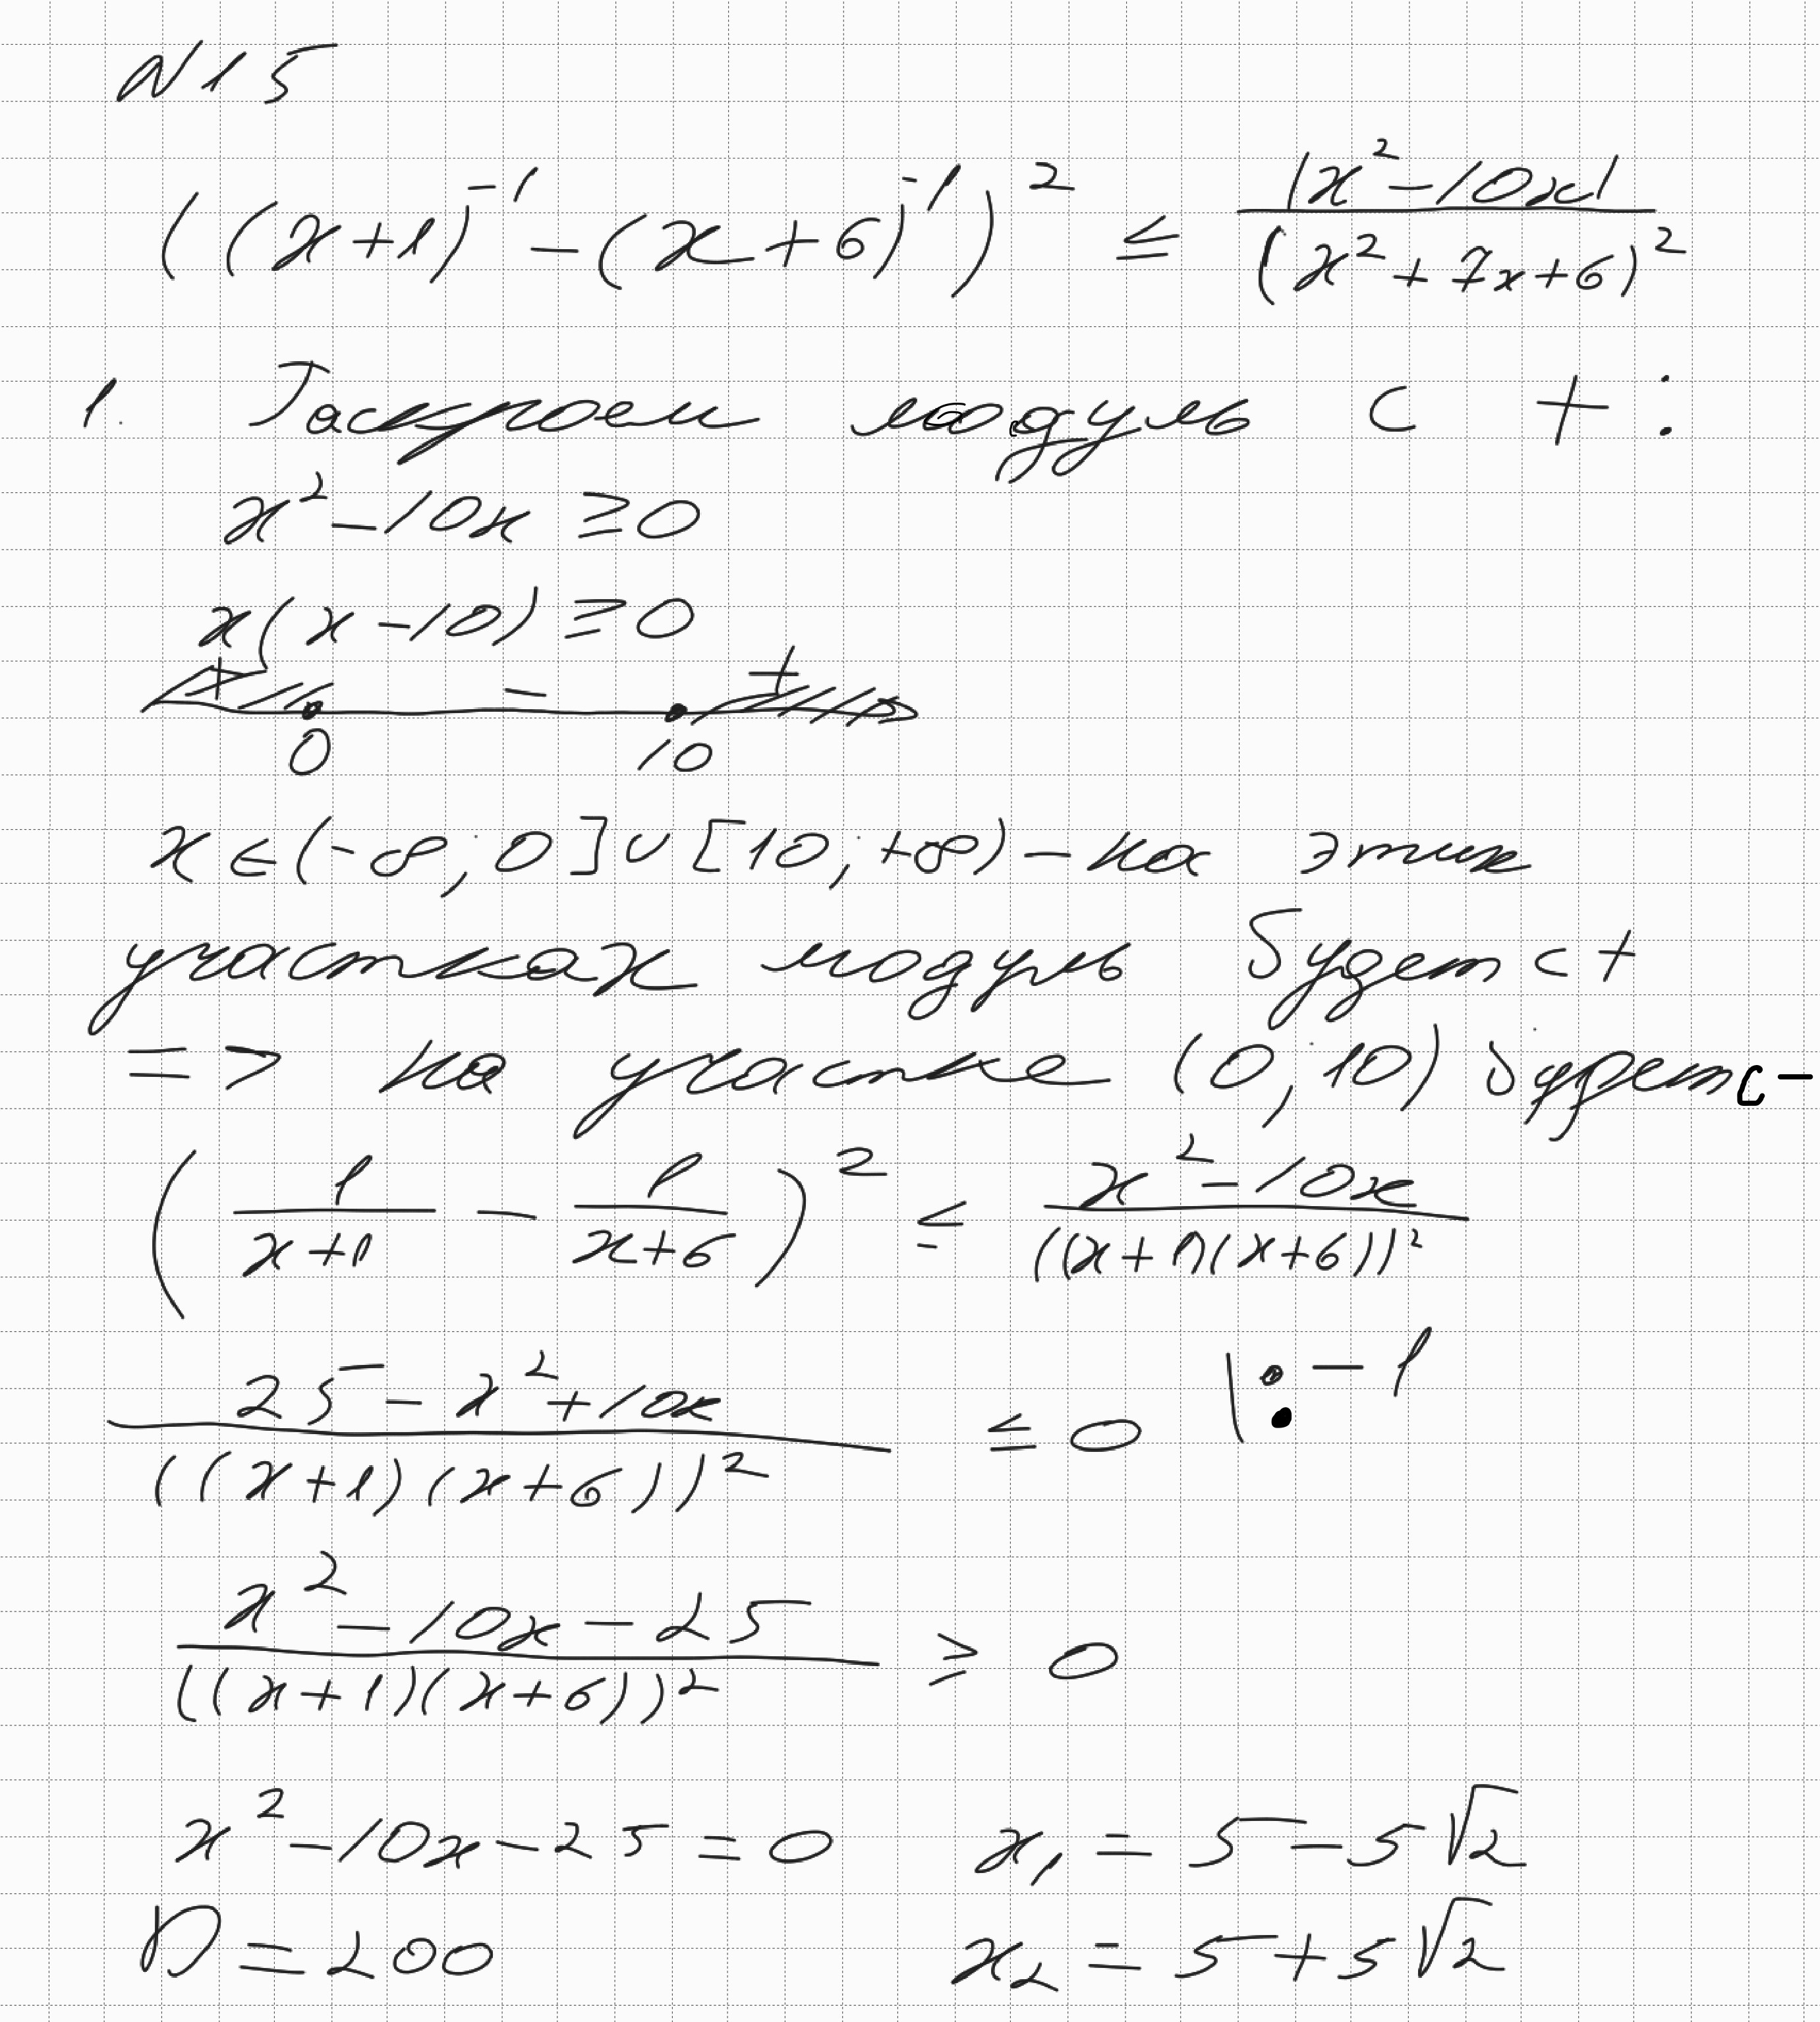 N15
((x+1)^-1 - (x+6)^-1)^2 ≤ |x^2-10x| / (x^2+7x+6)^2
1. Раскроем модуль с + :
x^2-10x ≥0
x(x-10) ≥0
+ - +
0 10
x∈(-∞, 0]∪[10, +∞) - на этих
участках модуль будет с +
=> на участке (0, 10) будет с -
(1/(x+1) - 1/(x+6))^2 ≤ (x^2-10x) / ((x+1)(x+6))^2
(25-x^2+10x) / ((x+1)(x+6))^2 ≤ 0 | : -1
(x^2-10x-25) / ((x+1)(x+6))^2 ≥ 0
x^2-10x-25=0 x₁ = 5-5√2
D=200 x₂ = 5+5√2